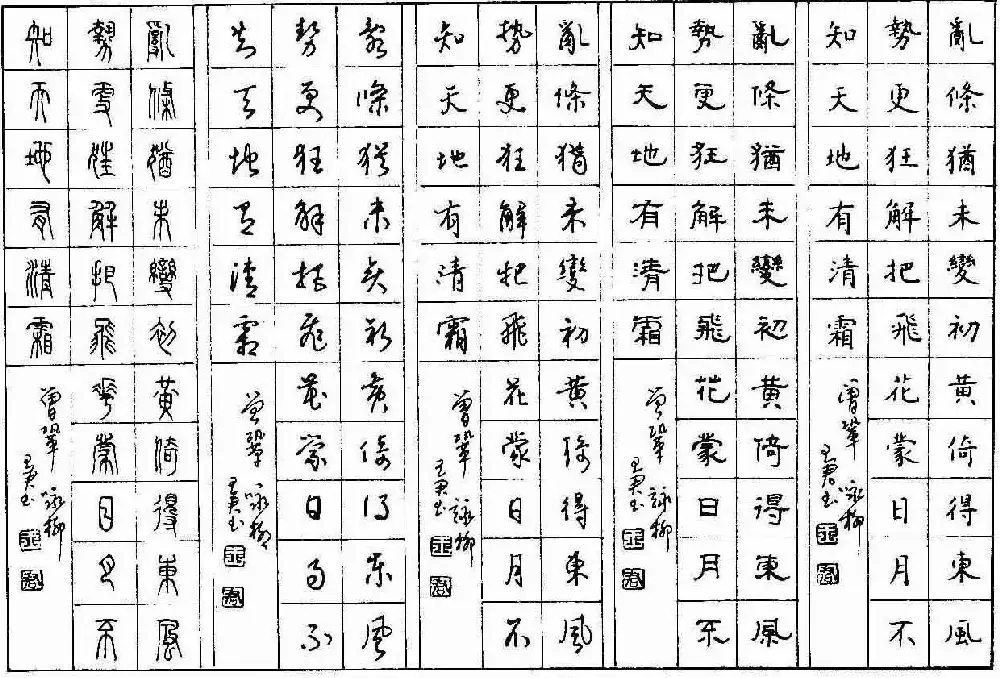 亂條猶未變初黃倚得東風
勢更狂解把飛花蒙日月不
知天地有清霜
曾鞏 咏柳
亂條猶未變初黃倚得東風
勢更狂解把飛花蒙日月不
知天地有清霜
曾鞏 詠柳
亂條猶未變初黃倚得東風
勢更狂解把飛花蒙日月不
知天地有清霜
曾鞏 詠柳
亂條猶未變初黃倚得東風
勢更狂解把飛花蒙日月不
知天地有清霜
曾鞏 咏柳
亂條猶未變初黃倚得東風
勢更狂解把飛花蒙日月不
知天地有清霜
曾鞏 咏柳